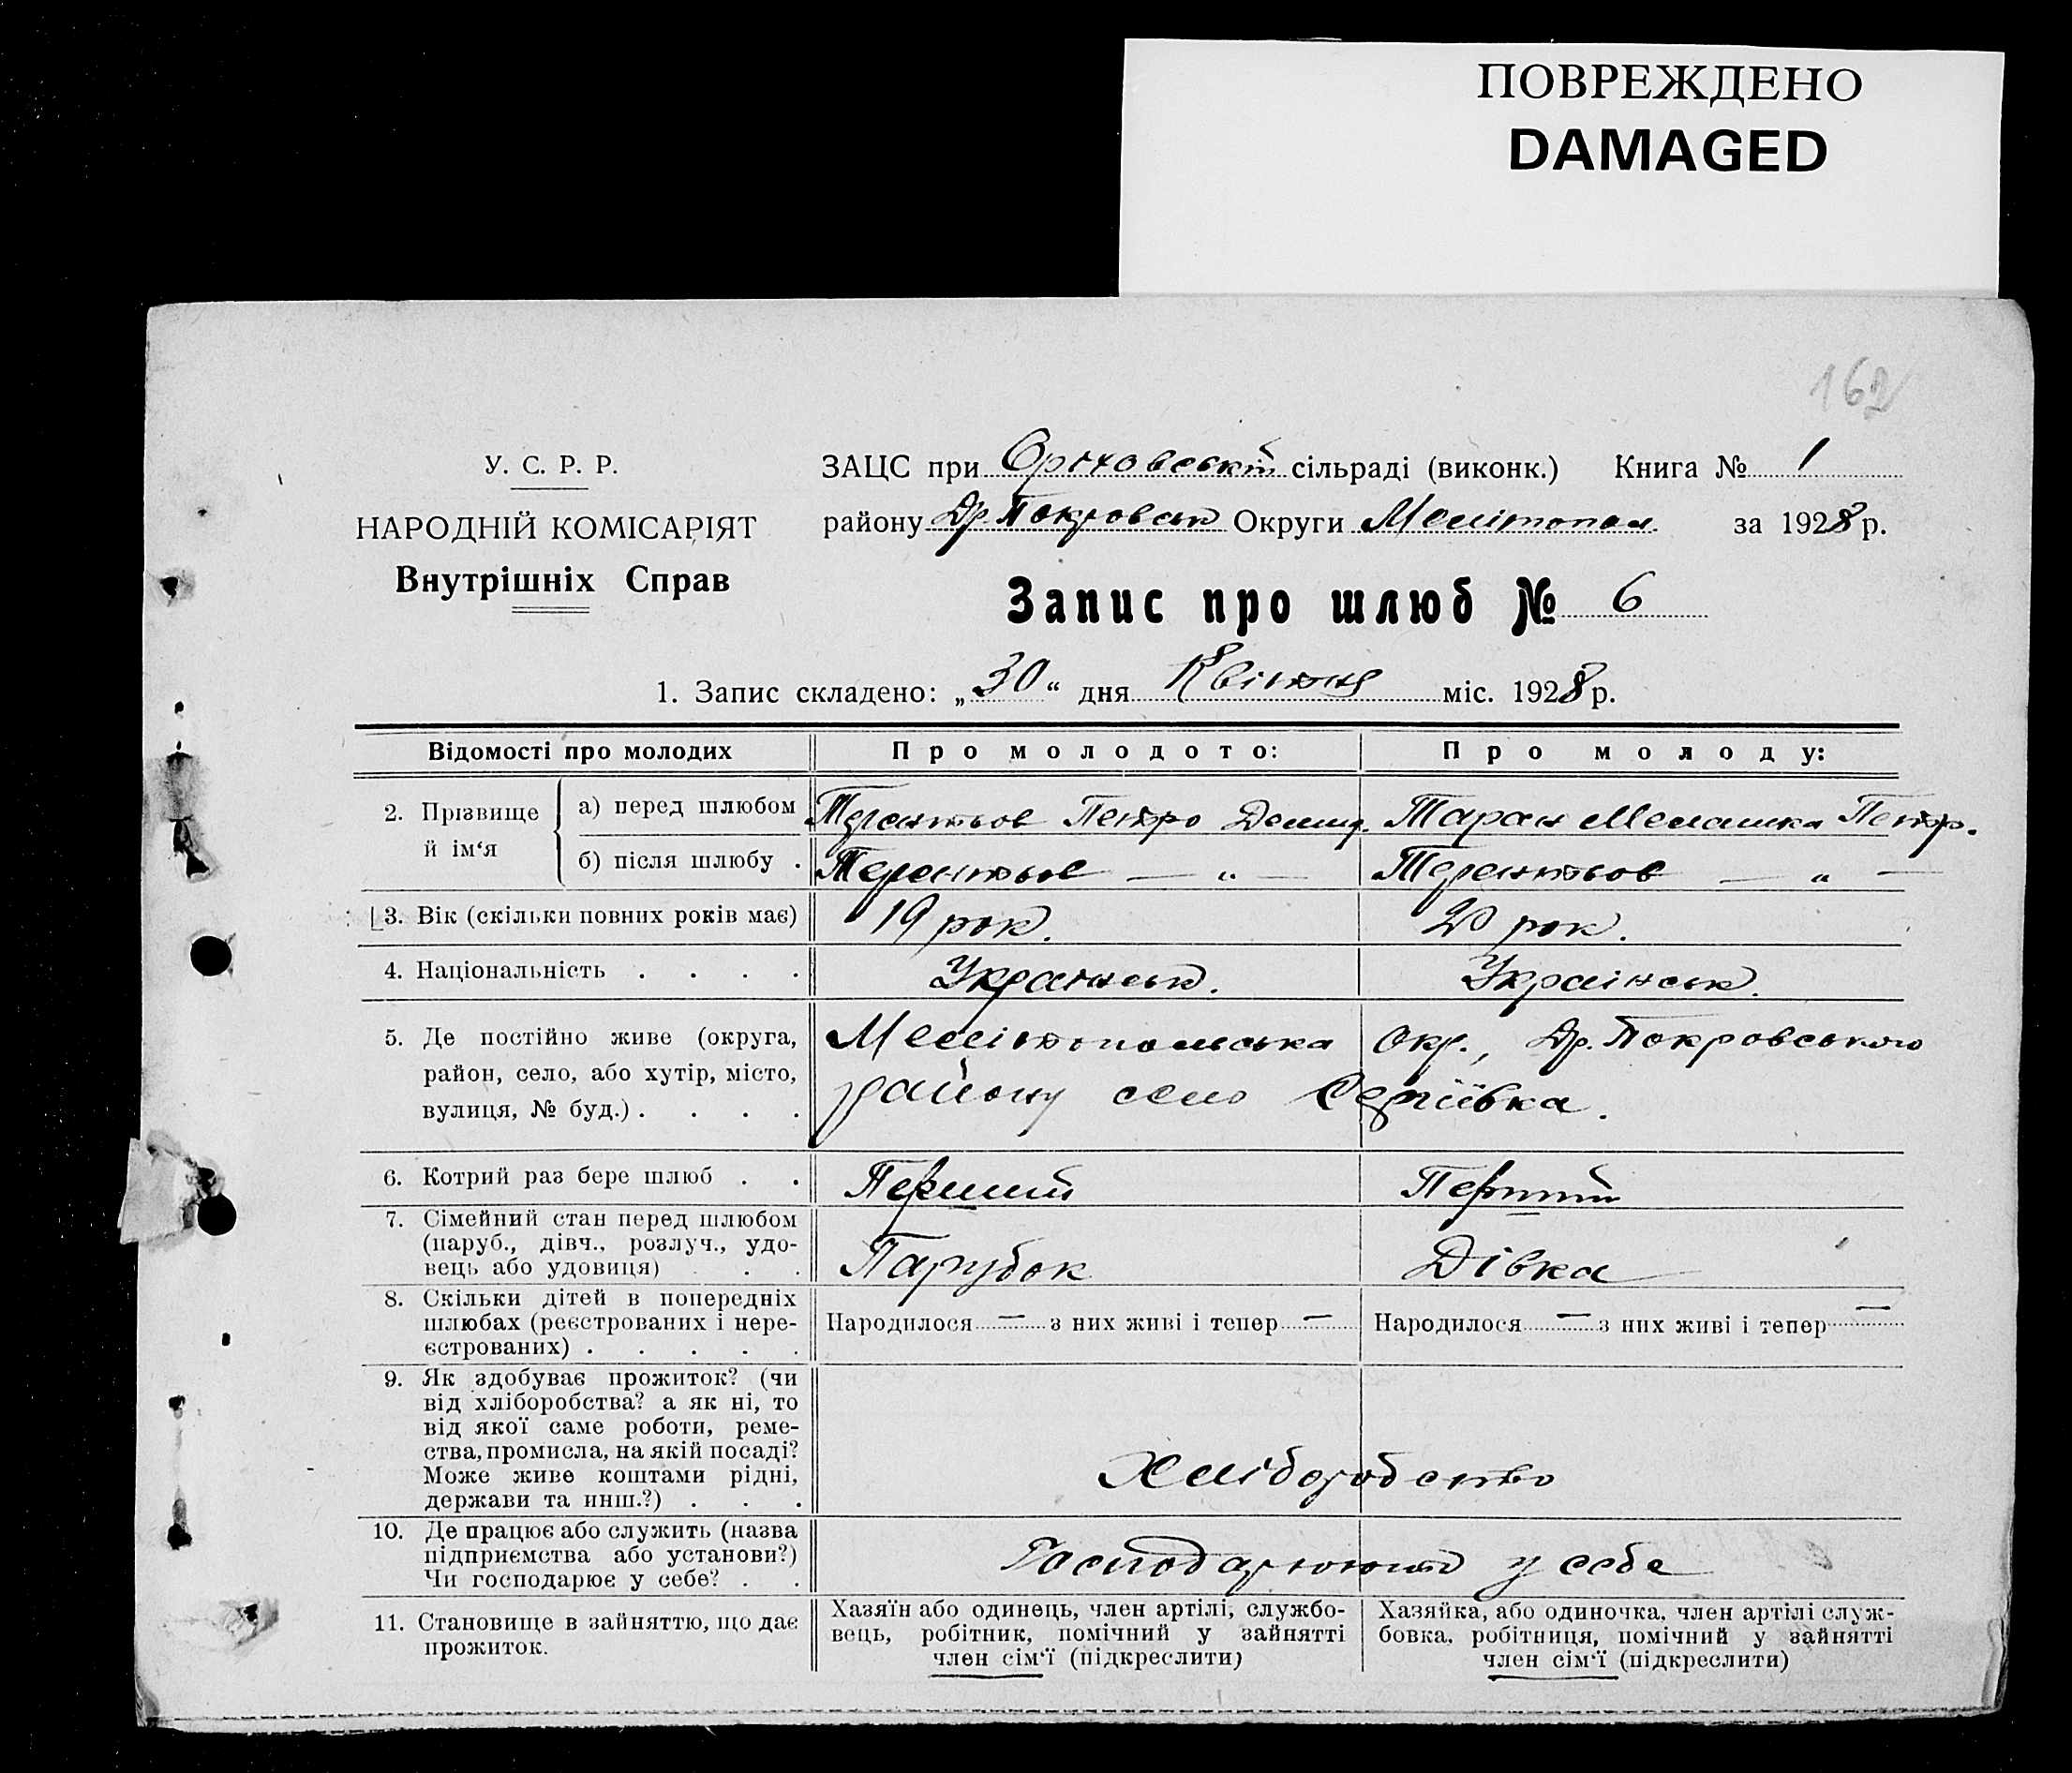 ПОВРЕЖДЕНО
DAMAGED
162
У. С. Р. Р.
НАРОДНІЙ КОМІСАРІЯТ
Внутрішніх Справ
ЗАЦС при Оріховській сільраді (виконк.) Книга № 1
району Др. Покровськ Округи Мелітопол за 1928 р.
Запис про шлюб № 6
1. Запис складено: „30“ дня Квітня міс. 1928 р.
Відомості про молодих
Про молодого:
Про молоду:
2. Прізвище й ім‘я
а) перед шлюбом
Терентьов Петро Демид.
Таран Мелашка Петр.
б) після шлюбу .
Терентьов — „ —
Терентьов — „ —
3. Вік (скільки повних років має)
19 рок.
20 рок.
4. Національність . . . .
Українськ.
Українськ.
5. Де постійно живе (округа,
район, село, або хутір, місто,
вулиця, № буд.) . . . .
Мелітопольська Окр., Др. Покровського
району село Сергіївка.
6. Котрий раз бере шлюб . .
Перший
Перший
7. Сімейний стан перед шлюбом
(паруб., дівч., розлуч., удо-
вець або удовиця) . . .
Парубок
Дівка
8. Скільки дітей в попередніх
шлюбах (реєстрованих і нере-
єстрованих) . . . . .
Народилося — з них живі і тепер —
Народилося — з них живі і тепер —
9. Як здобуває прожиток? (чи
від хліборобства? а як ні, то
від якої саме роботи, реме-
ства, промисла, на якій посаді?
Може живе коштами рідні,
держави та инш.?) . . .
Хліборобство
10. Де працює або служить (назва
підприємства або установи?)
Чи господарює у себе? . .
Господарюють у себе
11. Становище в зайняттю, що дає
прожиток.
Хазяїн або одинець, член артілі, службо-
вець, робітник, помічний у зайнятті
член сім‘ї (підкреслити)
Хазяйка, або одиночка, член артілі служ-
бовка, робітниця, помічний у зайнятті
член сім‘ї (підкреслити)